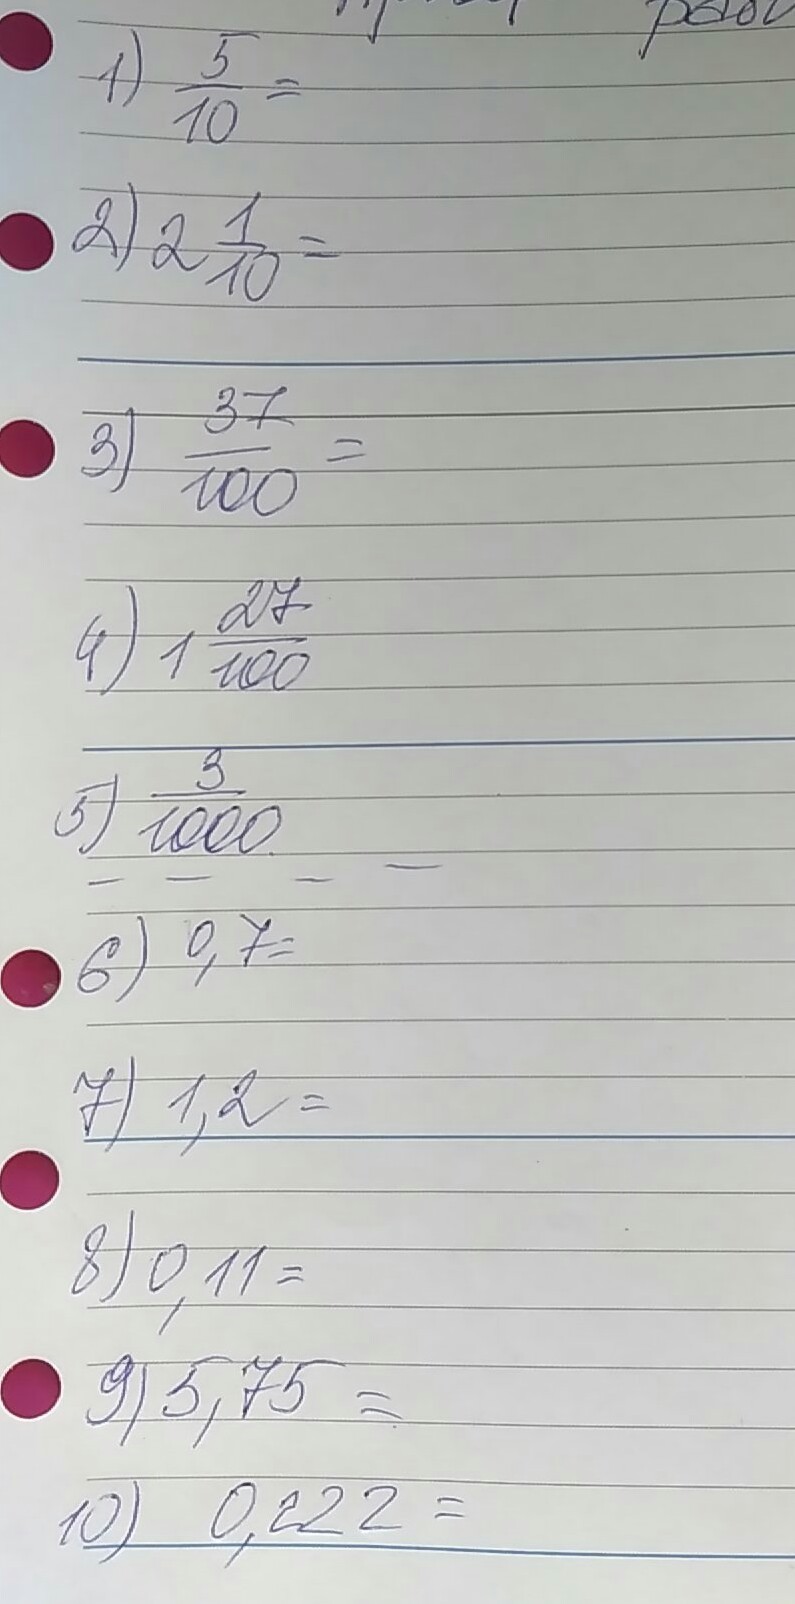 1) 5/10 =
2) 2 1/10 =
3) 37/100 =
4) 1 27/100
5) 3/1000
6) 0,7 =
7) 1,2 =
8) 0,11 =
9) 5,75 =
10) 0,222 =